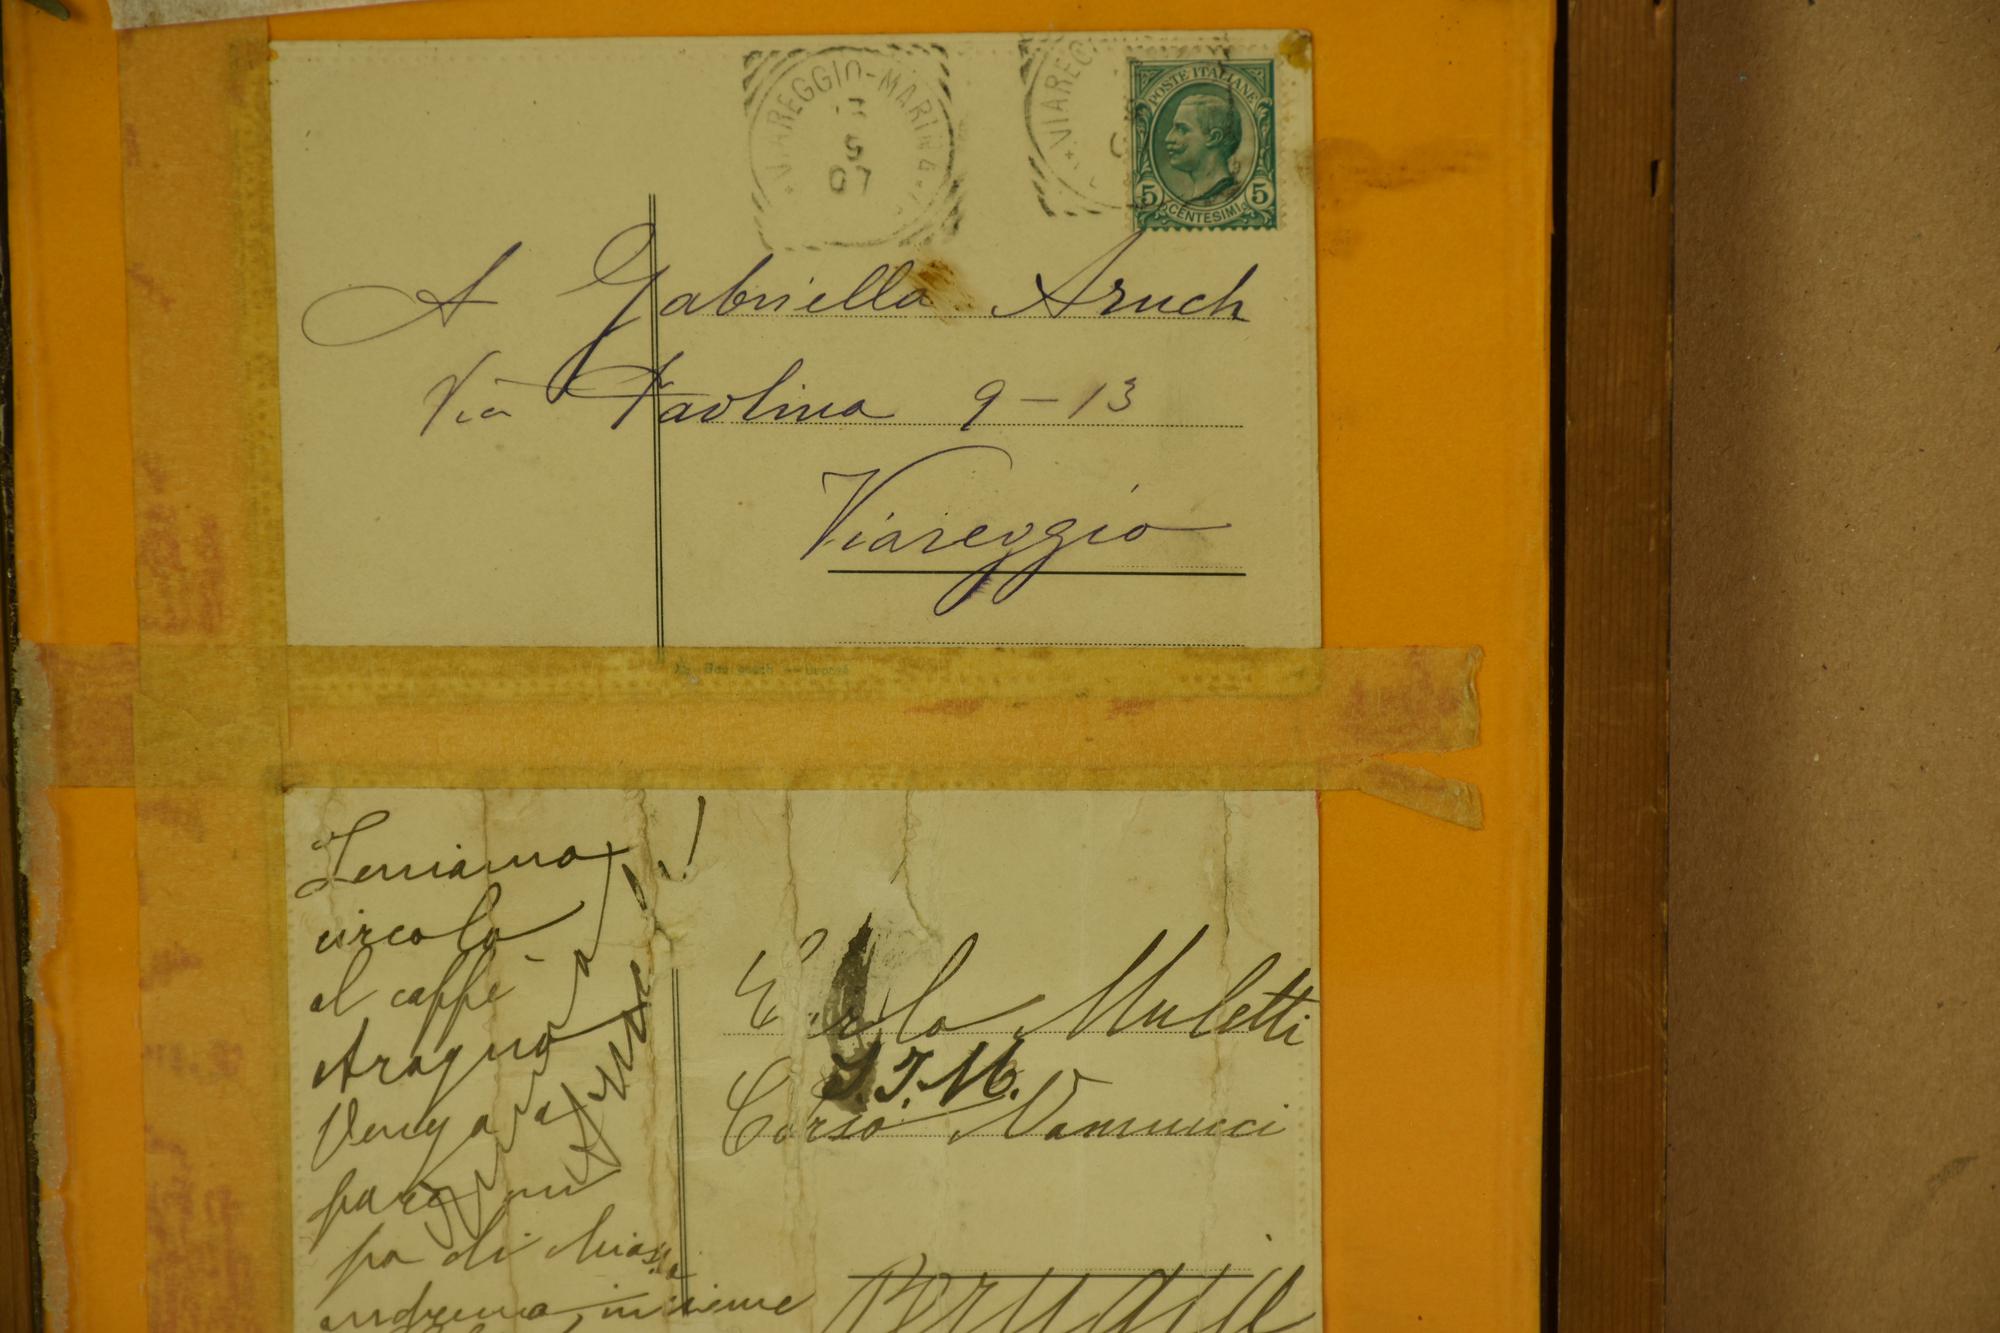 VIAREGGIO-MARINA
5
07
VIAREGG
POSTE ITALIANE
5 CENTESIMI 5
A Gabriella Aruch
Via Paolina 9-13
Viareggio
Teniamo
circolo
al caffè
Aragno
Venga
pa di
andremo, insieme
Muletti
S.T.M.
Corso Vannucci
Perugia